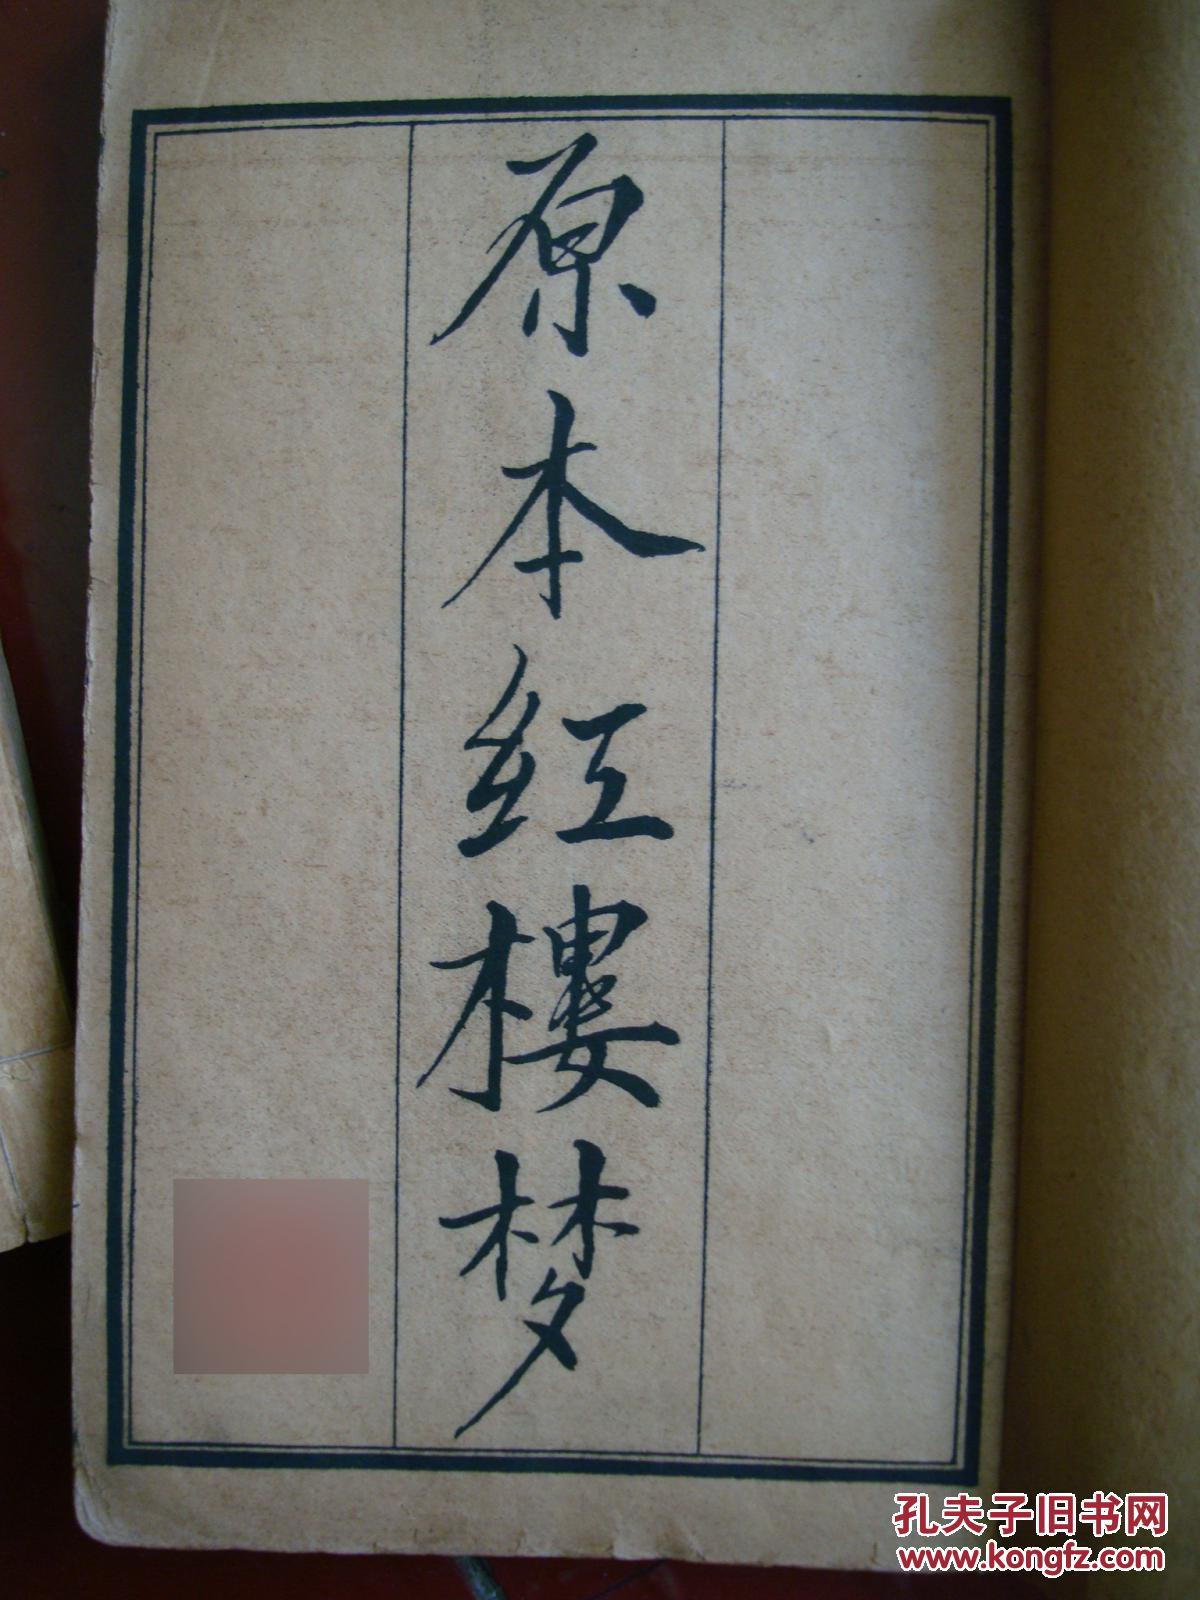 原本红樓梦
孔夫子旧书网
www.kongfz.com